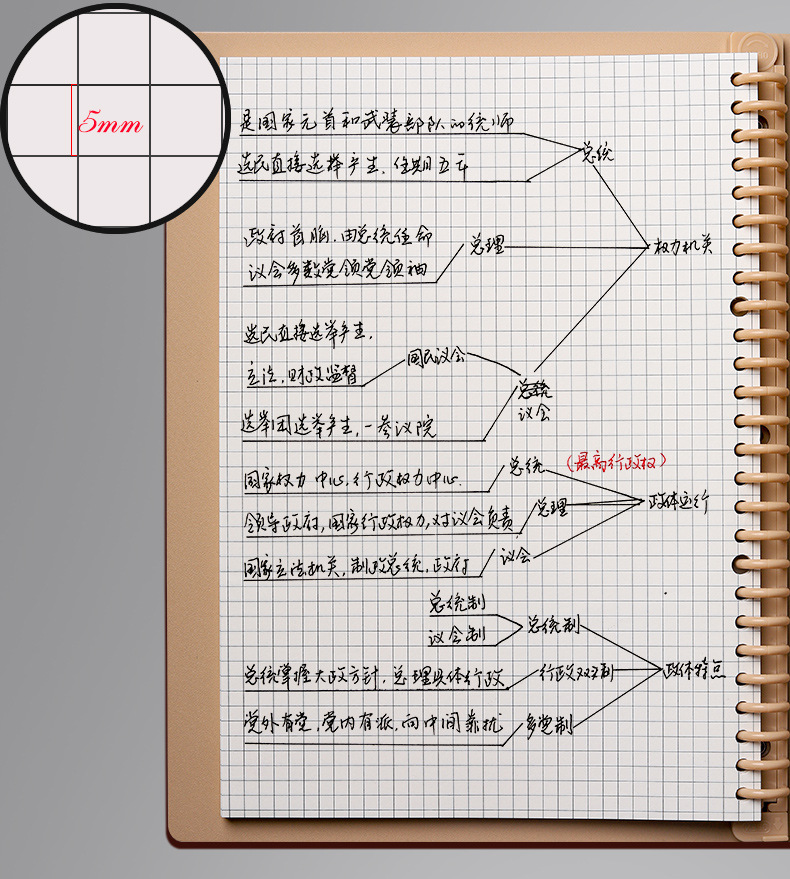 5mm
是国家元首和武装部队的统师
选民直接选举产生，任期五年
总统
政府首脑，由总统任命
总理
权力机关
议会多数党领党领袖
选民直接选举产生，
国民议会
立法，财政监督
总统
议会
选举团选举产生，一参议院
国家权力中心，行政权力中心.
总统
（最高行政权）
领导政府，国家行政权力，对议会负责
总理
政体运行
国家立法机关，制政总统，政府
议会
总统制
议会制
总统制
总统掌握大政方针，总理具体行政
行政双头制
政体特点
党外有党，党内有派，向中间靠拢
多党制